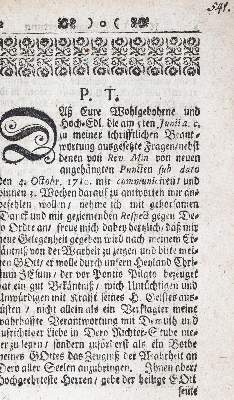 541.
) o (
P. T.
Aß Eure Wohlgebohrne und
Hoch-Edl. die am 5ten Junii a. c.
zu meiner schrifftlichen Verant-
wortung ausgesetzte Fragen/nebst
denen von Rev. Min von neuen
angehängten Puncten sub dato
den 4. Octobr. 17 mir communicirt/ und
binnen 2. Wochen darauf zu antworten mir an-
befehlen wollen / nehme ich mit gehorsamen
Danck und mit geziemenden Respect gegen De-
ro Ordre an/ freue mich dabey hertzlich/ daß mir
neue Gelegenheit gegeben wird nach meinem Be-
käntniß von der Warheit zu zeugen und bitte mei-
nen GOtt/ er wolle durch unsern Heyland Chri-
stum JEsum / der vor Pontio Pilato bezeuget
hat ein gut Bekäntniß/ mich Untüchtigen und
Unwürdigen mit Krafft seines H. Geistes aus-
rüsten / nicht allein als ein Verklagter meine
wahrhaffte Verantwortung mit Demuth und
aufrichtiger Liebe in Dero Richter-Stube nie-
der zu legen/ sondern zuförderst als ein Bothe
meines GOttes das Zeugniß der Wahrheit an
Dero aller Seelen anzubringen. Ihnen aber/
Hochgeehrteste Herren/ gebe der heilige GOtt
heute